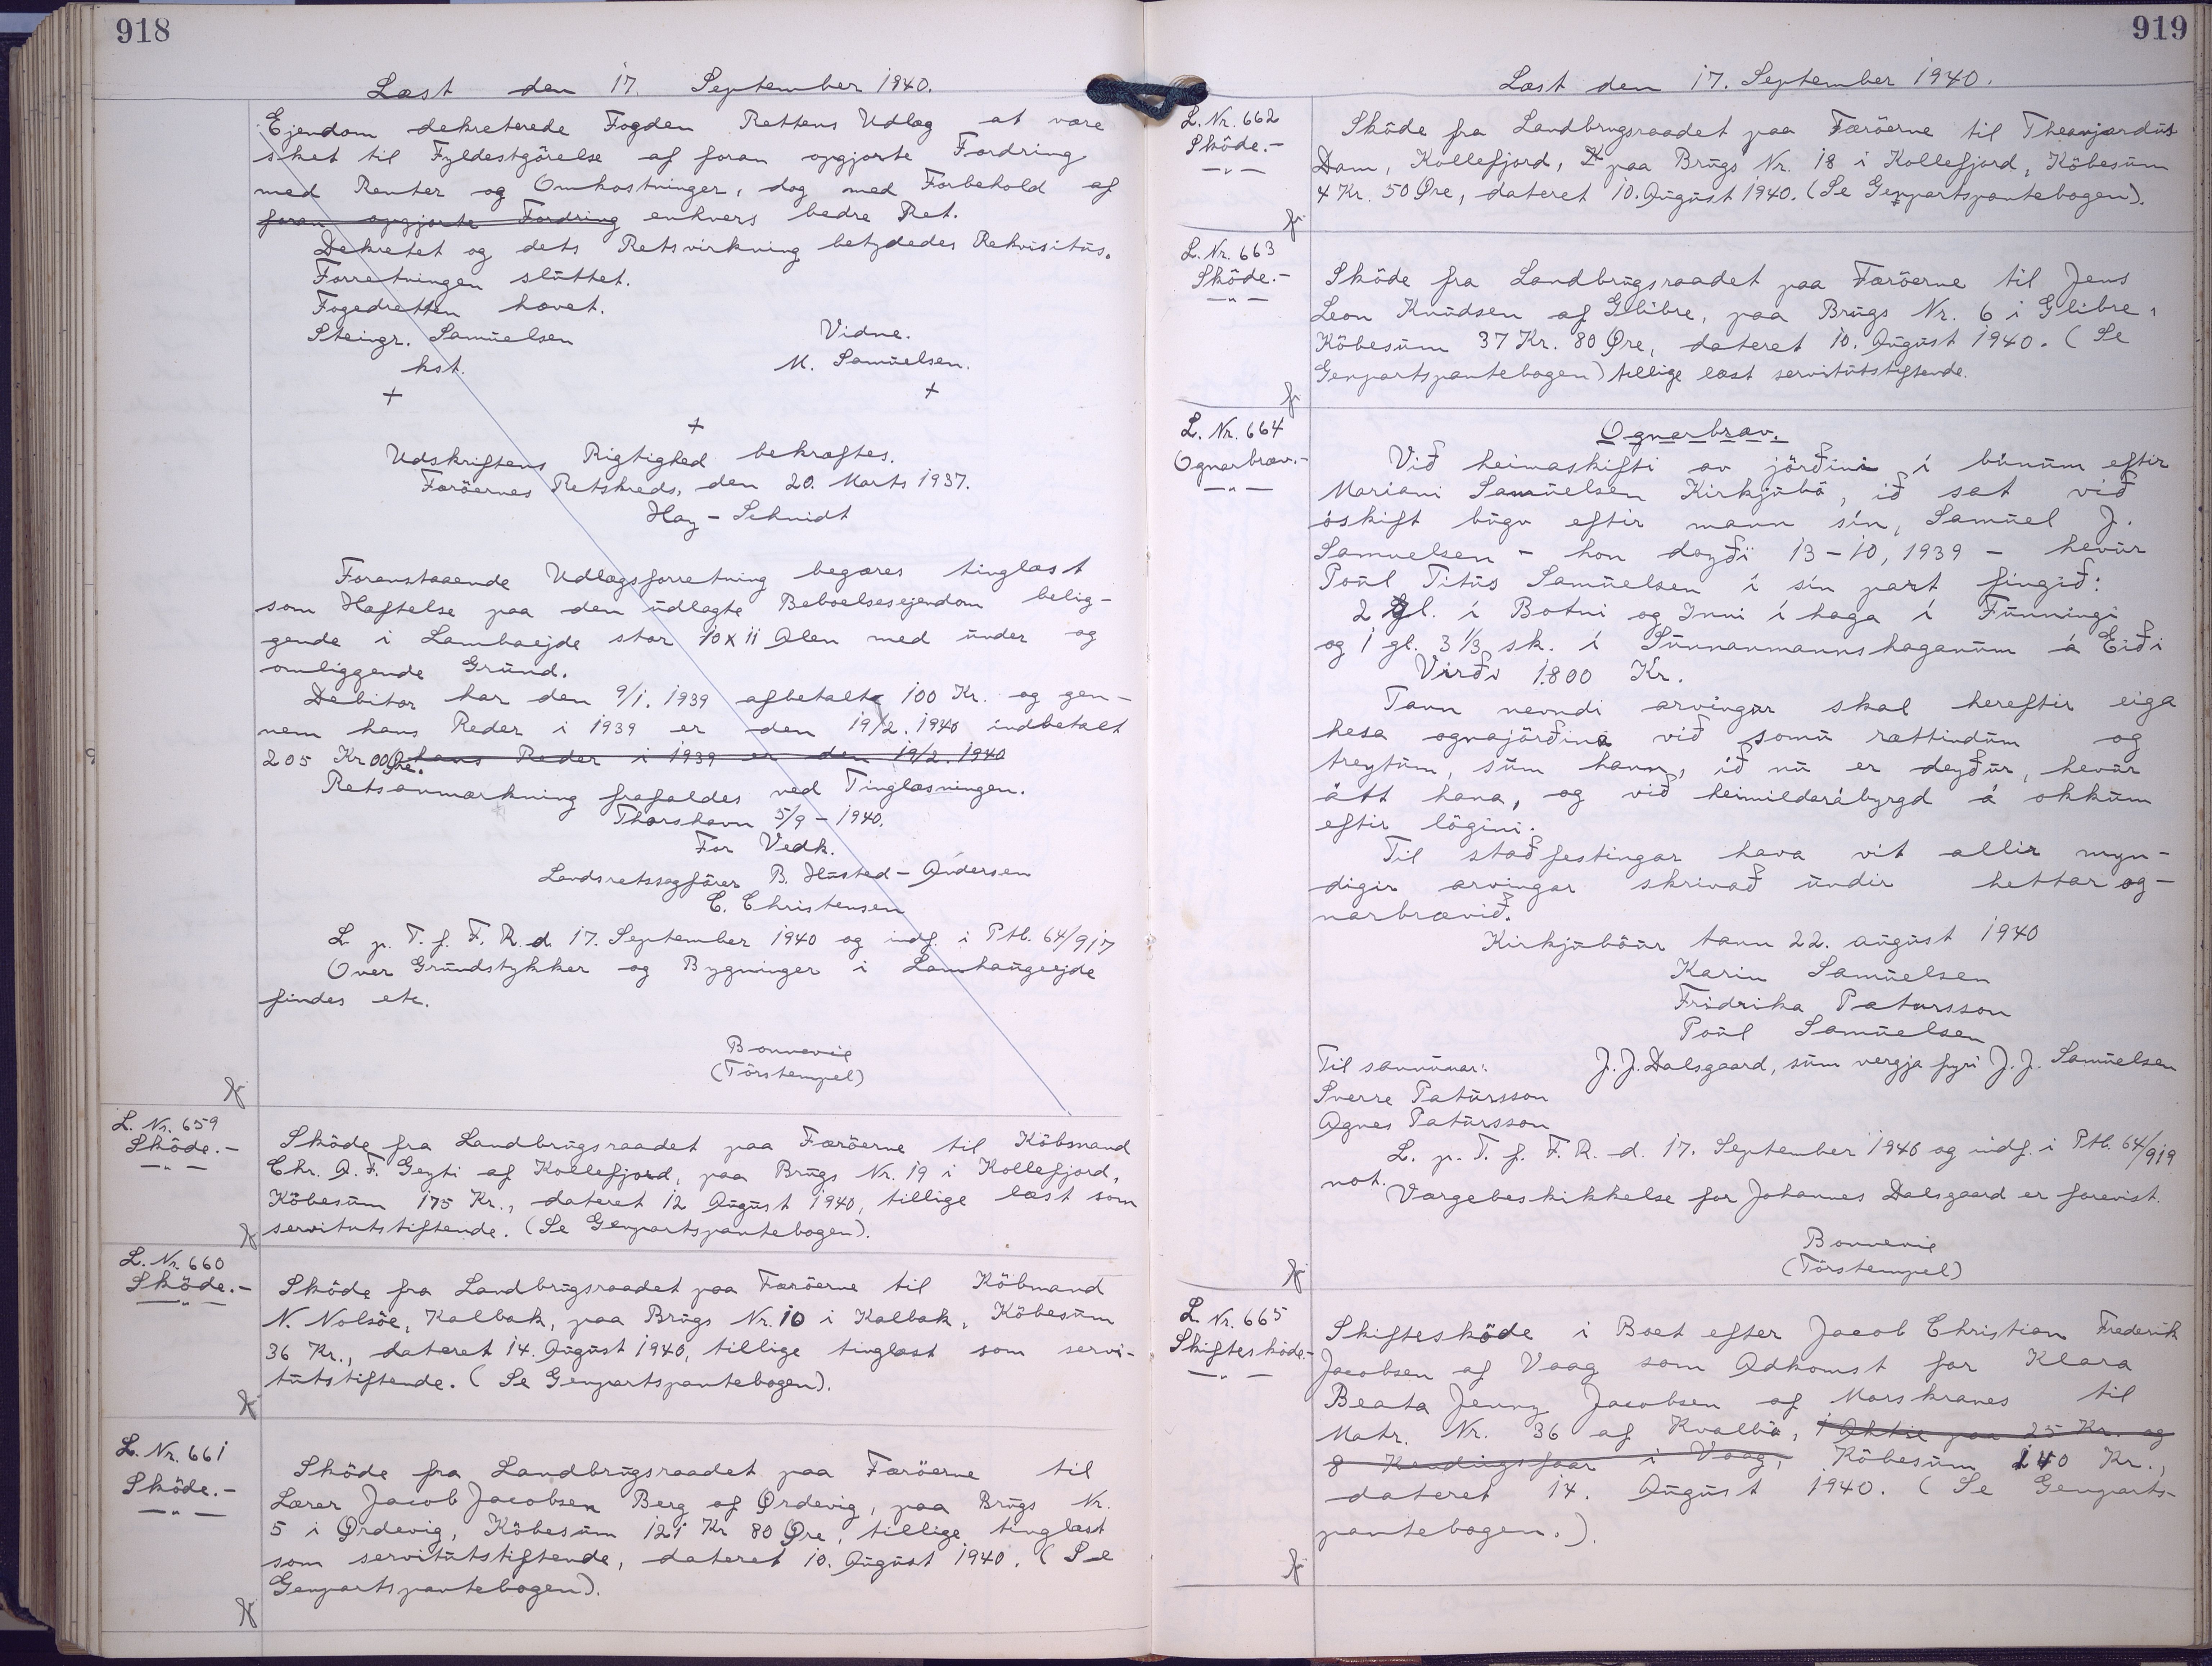 918
Læst den 17. September 1940.
Ejendom dekreterede Fogden Rettens Udlæg at være
sket til Fyldestgörelse af foran opgjorte Fordring
med Renter og Omkostninger, dog med Forbehold af
foran opgjorte Fordring enhvers bedre Ret.
Dekretet og dets Retsvirkning betydedes Rekvisitus.
Forretningen sluttet.
Fogedretten hævet.
Steingr. Samuelsen Vidne.
kst. M. Samuelsen.
+ +
+
Udskriftens Rigtighed bekræftes.
Færöernes Retskreds, den 20. Marts 1937.
Hay-Schmidt
Foranstaaende Udlægsforretning begæres tinglæst
som Hæftelse paa den udlagte Beboelsesejendom belig-
gende i Lambaejde stor 10 x 11 Alen med under og
omliggende Grund.
Debitor har den 9/1. 1939 afbetalt 100 Kr. og gen-
nem hans Reder i 1939 er den 19/2. 1940 indbetalt
205 Kr 00 Øre. hans Reder i 1939 er den 19/2. 1940
Retsanmærkning frafaldes ved Tinglæsningen.
Thorshavn 5/9 - 1940.
For Vedk.
Landsretssagförer B. Husted-Andersen
E. Christensen
L. p. T. f. F. R. d. 17. September 1940 og indf. i Ptb. 64/917
Over Grundstykker og Bygninger i Lamhaugeejde
findes etc.
Bonnevie
(Törstempel)
L. Nr. 659
Sköde.-
-"-
Sköde fra Landbrugsraadet paa Færöerne til Köbmand
Chr. A. F. Geyti af Kollefjord, paa Brugs Nr. 19 i Kollefjord,
Köbesum 175 Kr., dateret 12 August 1940, tillige læst som
servitutstiftende. (Se Genpartspantebogen).
L. Nr. 660
Sköde.-
-"-
Sköde fra Landbrugsraadet paa Færöerne til Köbmand
N. Nolsöe, Kalbak, paa Brugs Nr. 10 i Kalbak, Köbesum
36 Kr., dateret 14. August 1940, tillige tinglæst som servi-
tutstiftende. (Se Genpartspantebogen).
L. Nr. 661
Sköde.-
-"-
Sköde fra Landbrugsraadet paa Færöerne til
Lærer Jacob Jacobsen Berg af Ørdevig, paa Brugs Nr.
5 i Ørdevig, Köbesum 121 Kr 80 Øre, tillige tinglæst
som servitutstiftende, dateret 10. August 1940. (Se
Genpartspantebogen).
919
Læst den 17. September 1940.
L. Nr. 662
Sköde.-
-"-
Sköde fra Landbrugsraadet paa Færöerne til Theanjardus
Dam, Kollefjord, paa Brugs Nr. 18 i Kollefjord, Köbesum
4 Kr. 50 Øre, dateret 10. August 1940. (Se Genpartspantebogen).
L. Nr. 663
Sköde.-
-"-
Sköde fra Landbrugsraadet paa Færöerne til Jens
Leon Knudsen af Glibre, paa Brugs Nr. 6 i Glibre,
Köbesum 37 Kr. 80 Øre, dateret 10. August 1940. (Se
Genpartspantebogen) tillige læst servitutstiftende.
L. Nr. 664
Ognarbræv.-
-"-
Ognarbræv.
Við heimaskifti av jörðini í búnum eftir
Mariani Samuelsen Kirkjubö, ið sat við
óskift búgv eftir mann sín, Samuel J.
Samuelsen - hon doyði 13-10, 1939 - hevur
Poul Titus Samuelsen í sín part fingið:
2 gl. í Botni og Inni í haga í Funningi
og 1 gl. 3 1/3 sk. í Sunnanmannshaganum á Eiði
Virði 1.800 Kr.
Tann nevndi arvingar skal hereftir eiga
hesa ognajörðina við somu rættindum og
treytum, sum hann, ið nú er deyður, hevur
átt hana, og við heimildarábyrgd á okkum
eftir lógini.
Til staðfestingar hava vit allir myn-
digir arvingar skrivað undir hettar og-
narbrævið.
Kirkjuböur tann 22. august 1940
Karin Samuelsen
Fridrika Patursson
Poul Samuelsen
Til sannunar: J. J. Dalsgaard, sum vergja fyri J. J. Samuelsen
Sverre Patursson
Agnes Patursson
L. p. T. f. F. R. d. 17. September 1940 og indf. i Ptb. 64/919
not. Værgebeskikkelse for Johannes Dalsgaard er forevist.
Bonnevie
(Törstempel)
L. Nr. 665
Skiftesköde.-
-"-
Skiftesköde i Boet efter Jacob Christian Frederik
Jacobsen af Vaag som Adkomst for Klara
Beata Jenny Jacobsen af Morskranes til
Matr. Nr. 36 af Kvalbö, 1 Aktie paa 25 Kr. og
8 Kendingsfaar i Vaag, Köbesum 140 Kr.,
dateret 14. August 1940. (Se Genparts-
pantebogen.).